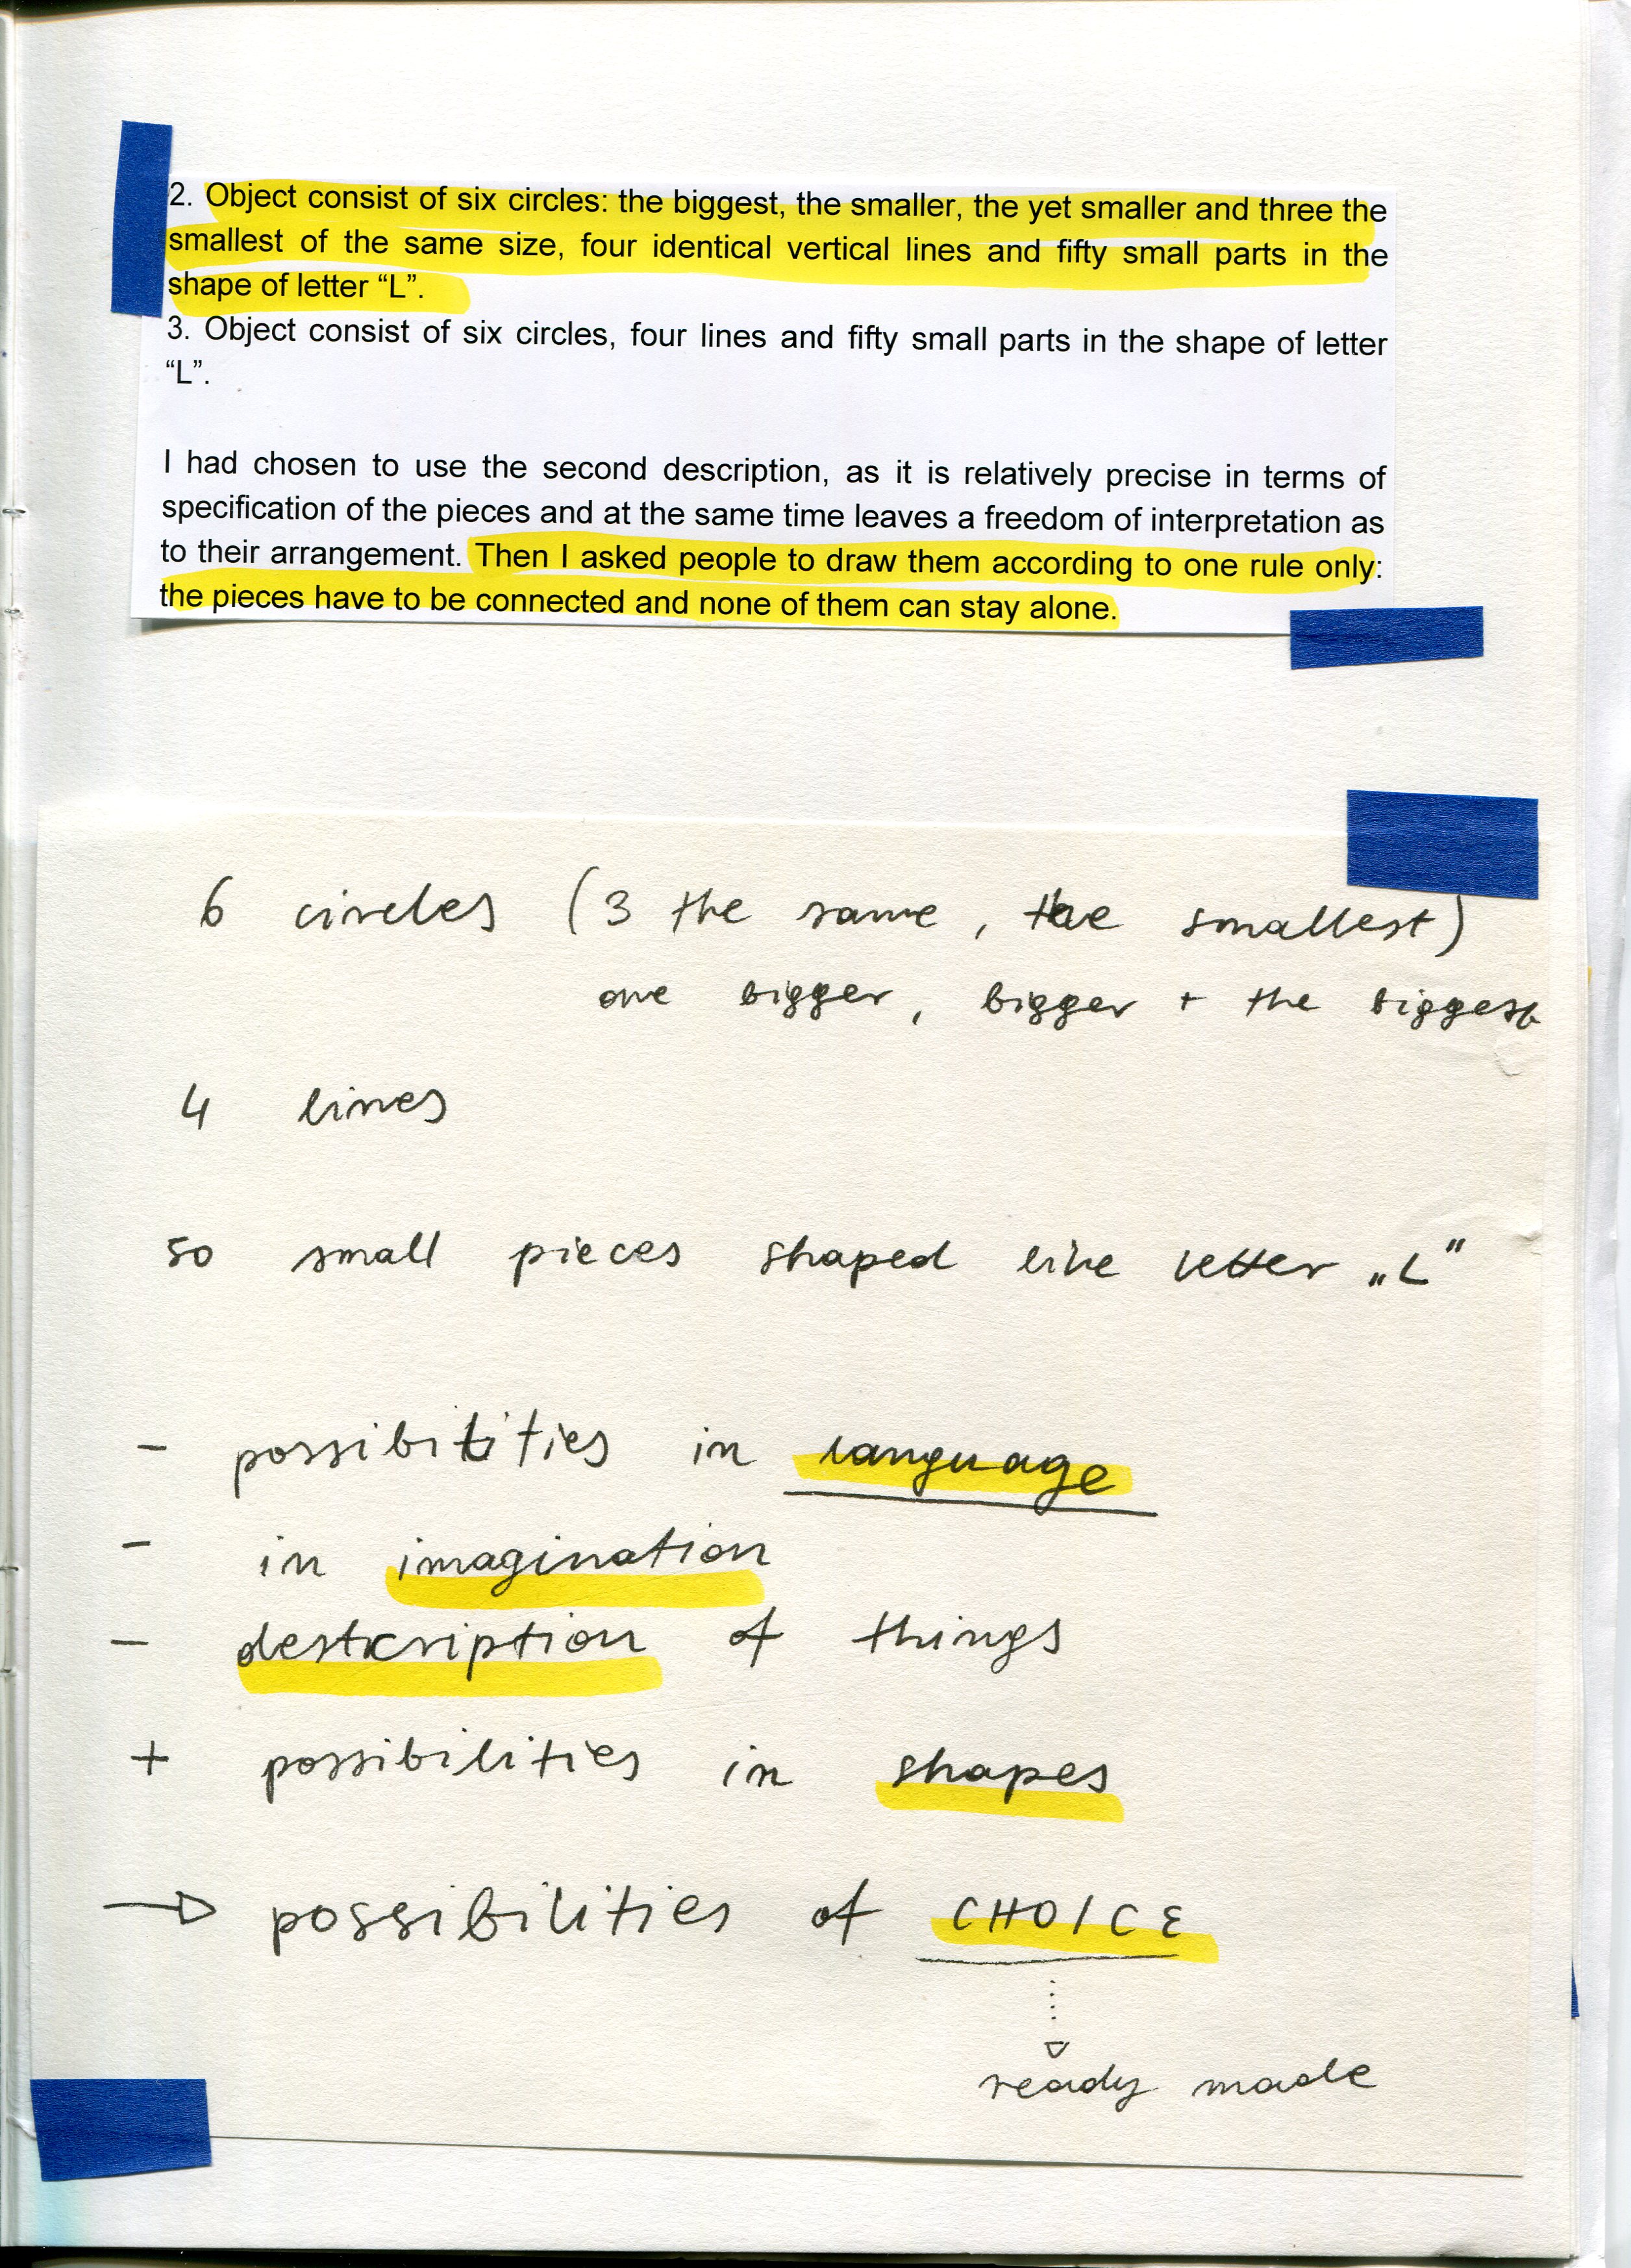 2. Object consist of six circles: the biggest, the smaller, the yet smaller and three the
smallest of the same size, four identical vertical lines and fifty small parts in the
shape of letter “L”.
3. Object consist of six circles, four lines and fifty small parts in the shape of letter
“L”.
I had chosen to use the second description, as it is relatively precise in terms of
specification of the pieces and at the same time leaves a freedom of interpretation as
to their arrangement. Then I asked people to draw them according to one rule only:
the pieces have to be connected and none of them can stay alone.
6 circles (3 the same, the smallest)
one bigger, bigger + the biggest
4 lines
50 small pieces shaped like letter „L"
- possibilities in language
- in imagination
- description of things
+ possibilities in shapes
→ possibilities of CHOICE
ready made